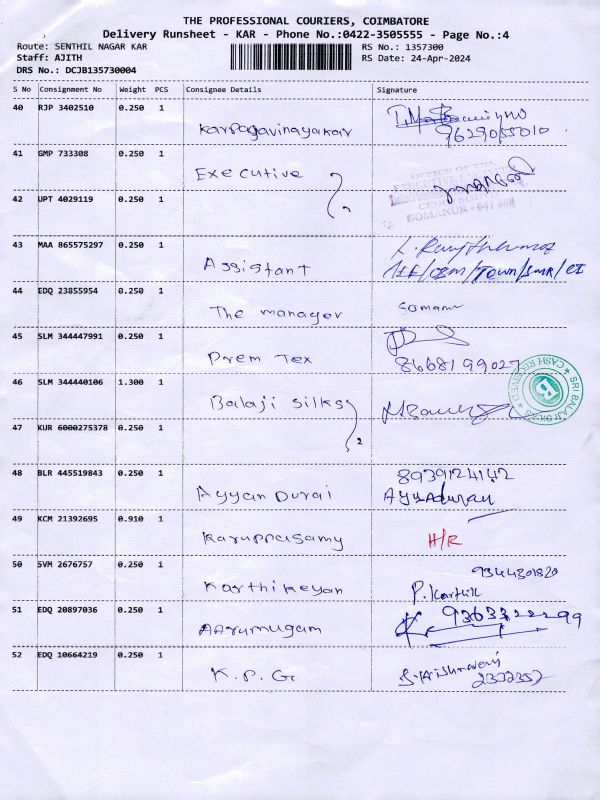 THE PROFESSIONAL COURIERS, COIMBATORE
Delivery Runsheet - KAR - Phone No.:0422-3505555 - Page No.:4
Route: SENTHIL NAGAR KAR
RS No.: 1357300
Staff: AJITH
RS Date: 24-Apr-2024
DRS No.: DCJB135730004
S No Consignment No Weight PCS Consignee Details Signature
40 RJP 3402510 0.250 1
Karpagavinayakar
9629055010
41 GMP 733308 0.250 1
Executive
OFFICE OF THE
42 UPT 4029119 0.250 1
2
SOMANUR
43 MAA 865575297 0.250 1
Assistant
44 EDQ 23855954 0.250 1
The manager
45 SLM 344447991 0.250 1
Prem Tex
8668199027
46 SLM 344440106 1.300 1
Balaji Silks
SRI BALAJI SILKS
CASH RECEIVED
B
47 KUR 6000275378 0.250 1
2
48 BLR 445519843 0.250 1
8939124142
Ayyan Durai
Ayyadurai
49 KCM 21392695 0.910 1
Karuppasamy H/R
50 SVM 2676757 0.250 1
9344301820
Karthikeyan P. Karthik
51 EDQ 20897036 0.250 1
Aarumugam
9363322299
52 EDQ 10664219 0.250 1
K.P.G
2332357